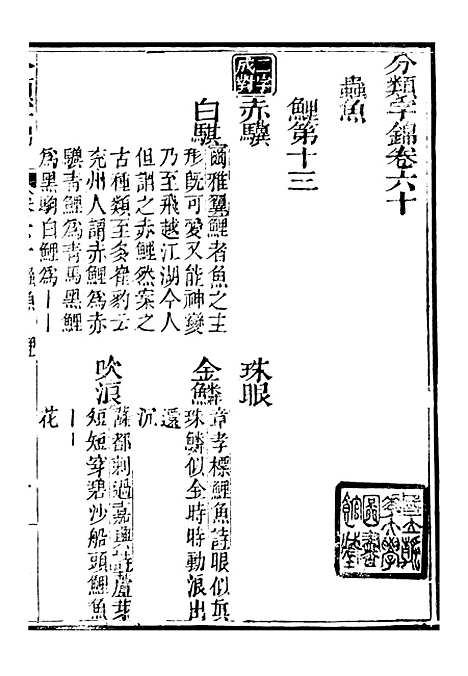 分類字錦卷六十
蟲魚
國立浙
江大學
圖書
館藏
鯉第十三
二字
成對
赤驥
珠眼
白騏
金鱗
爾雅翼鯉者魚之主
形旣可愛又能神變
乃至飛越江湖今人
但謂之赤鯉然案之
古種類至多崔豹云
兗州人謂赤鯉爲赤
驥青鯉爲青馬黑鯉
爲黑駒白鯉爲｜｜
章孝標鯉魚詩眼似眞
珠鱗似金時時動浪出
還
沉
吹浪
薩都剌過嘉興詩蘆芽
短短穿碧沙船頭鯉魚
｜｜
花